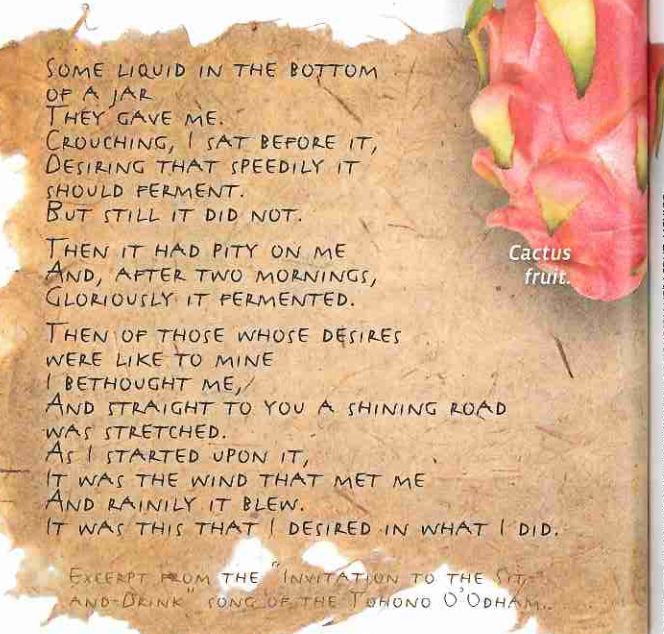 SOME LIQUID IN THE BOTTOM
OF A JAR
THEY GAVE ME.
CROUCHING, I SAT BEFORE IT,
DESIRING THAT SPEEDILY IT
SHOULD FERMENT.
BUT STILL IT DID NOT.
THEN IT HAD PITY ON ME
AND, AFTER TWO MORNINGS,
GLORIOUSLY IT FERMENTED.
THEN OF THOSE WHOSE DESIRES
WERE LIKE TO MINE
I BETHOUGHT ME,
AND STRAIGHT TO YOU A SHINING ROAD
WAS STRETCHED.
AS I STARTED UPON IT,
IT WAS THE WIND THAT MET ME
AND RAINILY IT BLEW.
IT WAS THIS THAT I DESIRED IN WHAT I DID.
EXCERPT FROM THE "INVITATION TO THE SIT-
AND-DRINK" SONG OF THE TOHONO O'ODHAM.
Cactus
fruit.